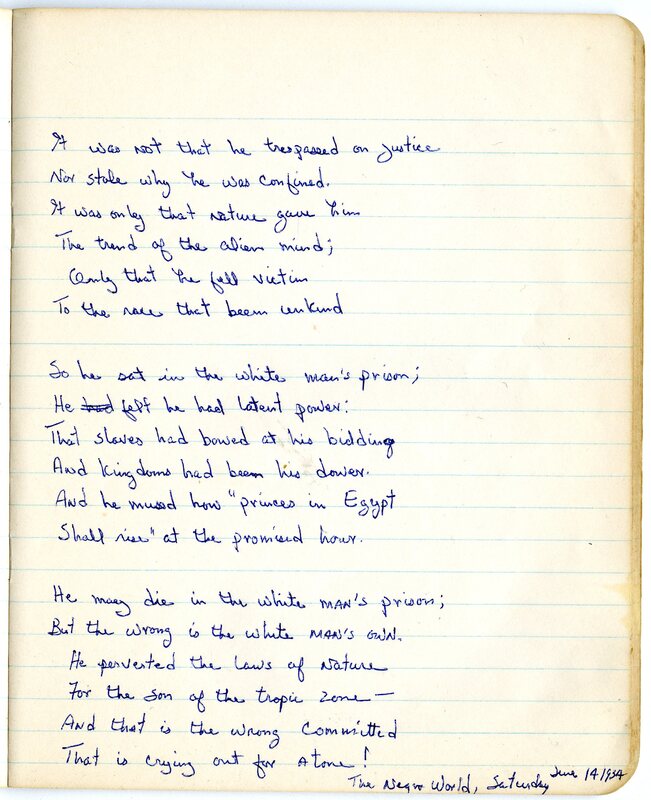 It was not that he trespassed on justice
Nor stole why he was confined.
It was only that nature gave him
The trend of the alien mind;
Only that he fell victim
To the race that been unkind
So he sat in the white man's prison;
He had felt he had latent power:
That slaves had bowed at his bidding
And kingdoms had been his dower.
And he mused how "princes in Egypt
Shall rise" at the promised hour.
He may die in the white MAN'S prison;
But the wrong is the white MAN'S OWN.
He perverted the laws of Nature
For the son of the tropic zone—
And that is the wrong committed
That is crying out for atone!
The Negro World, Saturday June 14 1934